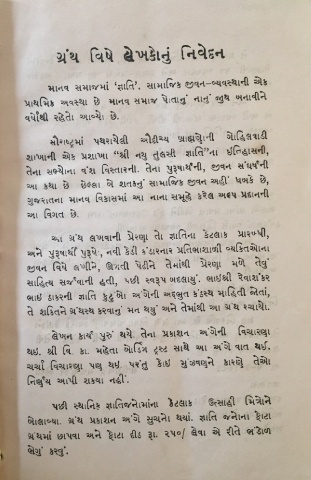 ગ્રંથ વિષે લેખકોનું નિવેદન
માનવ સમાજમાં "જ્ઞાતિ". સામાજિક જીવન-વ્યવસ્થાની એક
પ્રાથમિક અવસ્થા છે માનવ સમાજ પોતાનું નાનું જૂથ બનાવીને
વર્ષોથી રહેતો આવ્યો છે.
સૌરાષ્ટ્રમાં પથરાયેલી ઔદીચ્ય બ્રાહ્મણોની ગોહિલવાડી
શાખાની એક પ્રશાખા "શ્રી નથુ તુલસી જ્ઞાતિ"ના ઈતિહાસની,
તેના સભ્યોના વંશ વિસ્તારની. તેના પુરૂષાર્થની, જીવન સંઘર્ષની
આ કથા છે. છેલ્લા બે શતકનું સામાજિક જીવન અહીં ધબકે છે,
ગુજરાતના માનવ વિકાસમાં આ નાના સમૂહે કરેલ અલ્પ પ્રદાનની
આ વિગત છે.
આ ગ્રંથ લખવાની પ્રેરણા તો જ્ઞાતિના કેટલાક પ્રારબ્ધી,
અને પુરૂષાર્થી પુરૂષો, નવી કેડી કંડારનાર પ્રતિભાશાળી વ્યક્તિઓના
જીવન વિષે લખીને, ઊગતી પેઢીને તેમાંથી પ્રેરણા મળે તેવું
સાહિત્ય સર્જવાની હતી, પછી સ્વરૂપ બદલાયું. ભાઈશ્રી રેવાશંકર
ભાઈ ઠાકરની જ્ઞાતિ કુટુંબો અંગેની અદ્ભુત કંઠસ્થ માહિતી જોતાં,
તે શક્તિને ગ્રંથસ્થ કરવાનું મન થયું અને તેમાંથી આ ગ્રંથ રચાયો.
લેખન કાર્ય પુરું થયે. તેના પ્રકાશન અંગેની વિચારણા
થઇ. શ્રી વિ. કા. મહેતા બોર્ડિંગ ટ્રસ્ટ સાથે આ અંગે વાત થઈ.
ચર્ચા વિચારણા પણ થઇ પરંતુ કોઇ મુંઝવણને કારણે તેઓ
નિર્ણય આપી શકયા નહીં.
પછી સ્થાનિક જ્ઞાતિજનોમાંના કેટલાક ઉત્સાહી મિત્રોને
બોલાવ્યા. ગ્રંથ પ્રકાશન અંગે સૂચનો થયાં. જ્ઞાતિ જનોના ફોટા
ગ્રંથમાં છાપવા અને ફોટા દીઠ રૂા. ૨૫૦/ લેવા એ રીતે ભંડોળ
ભેગું કરવું.